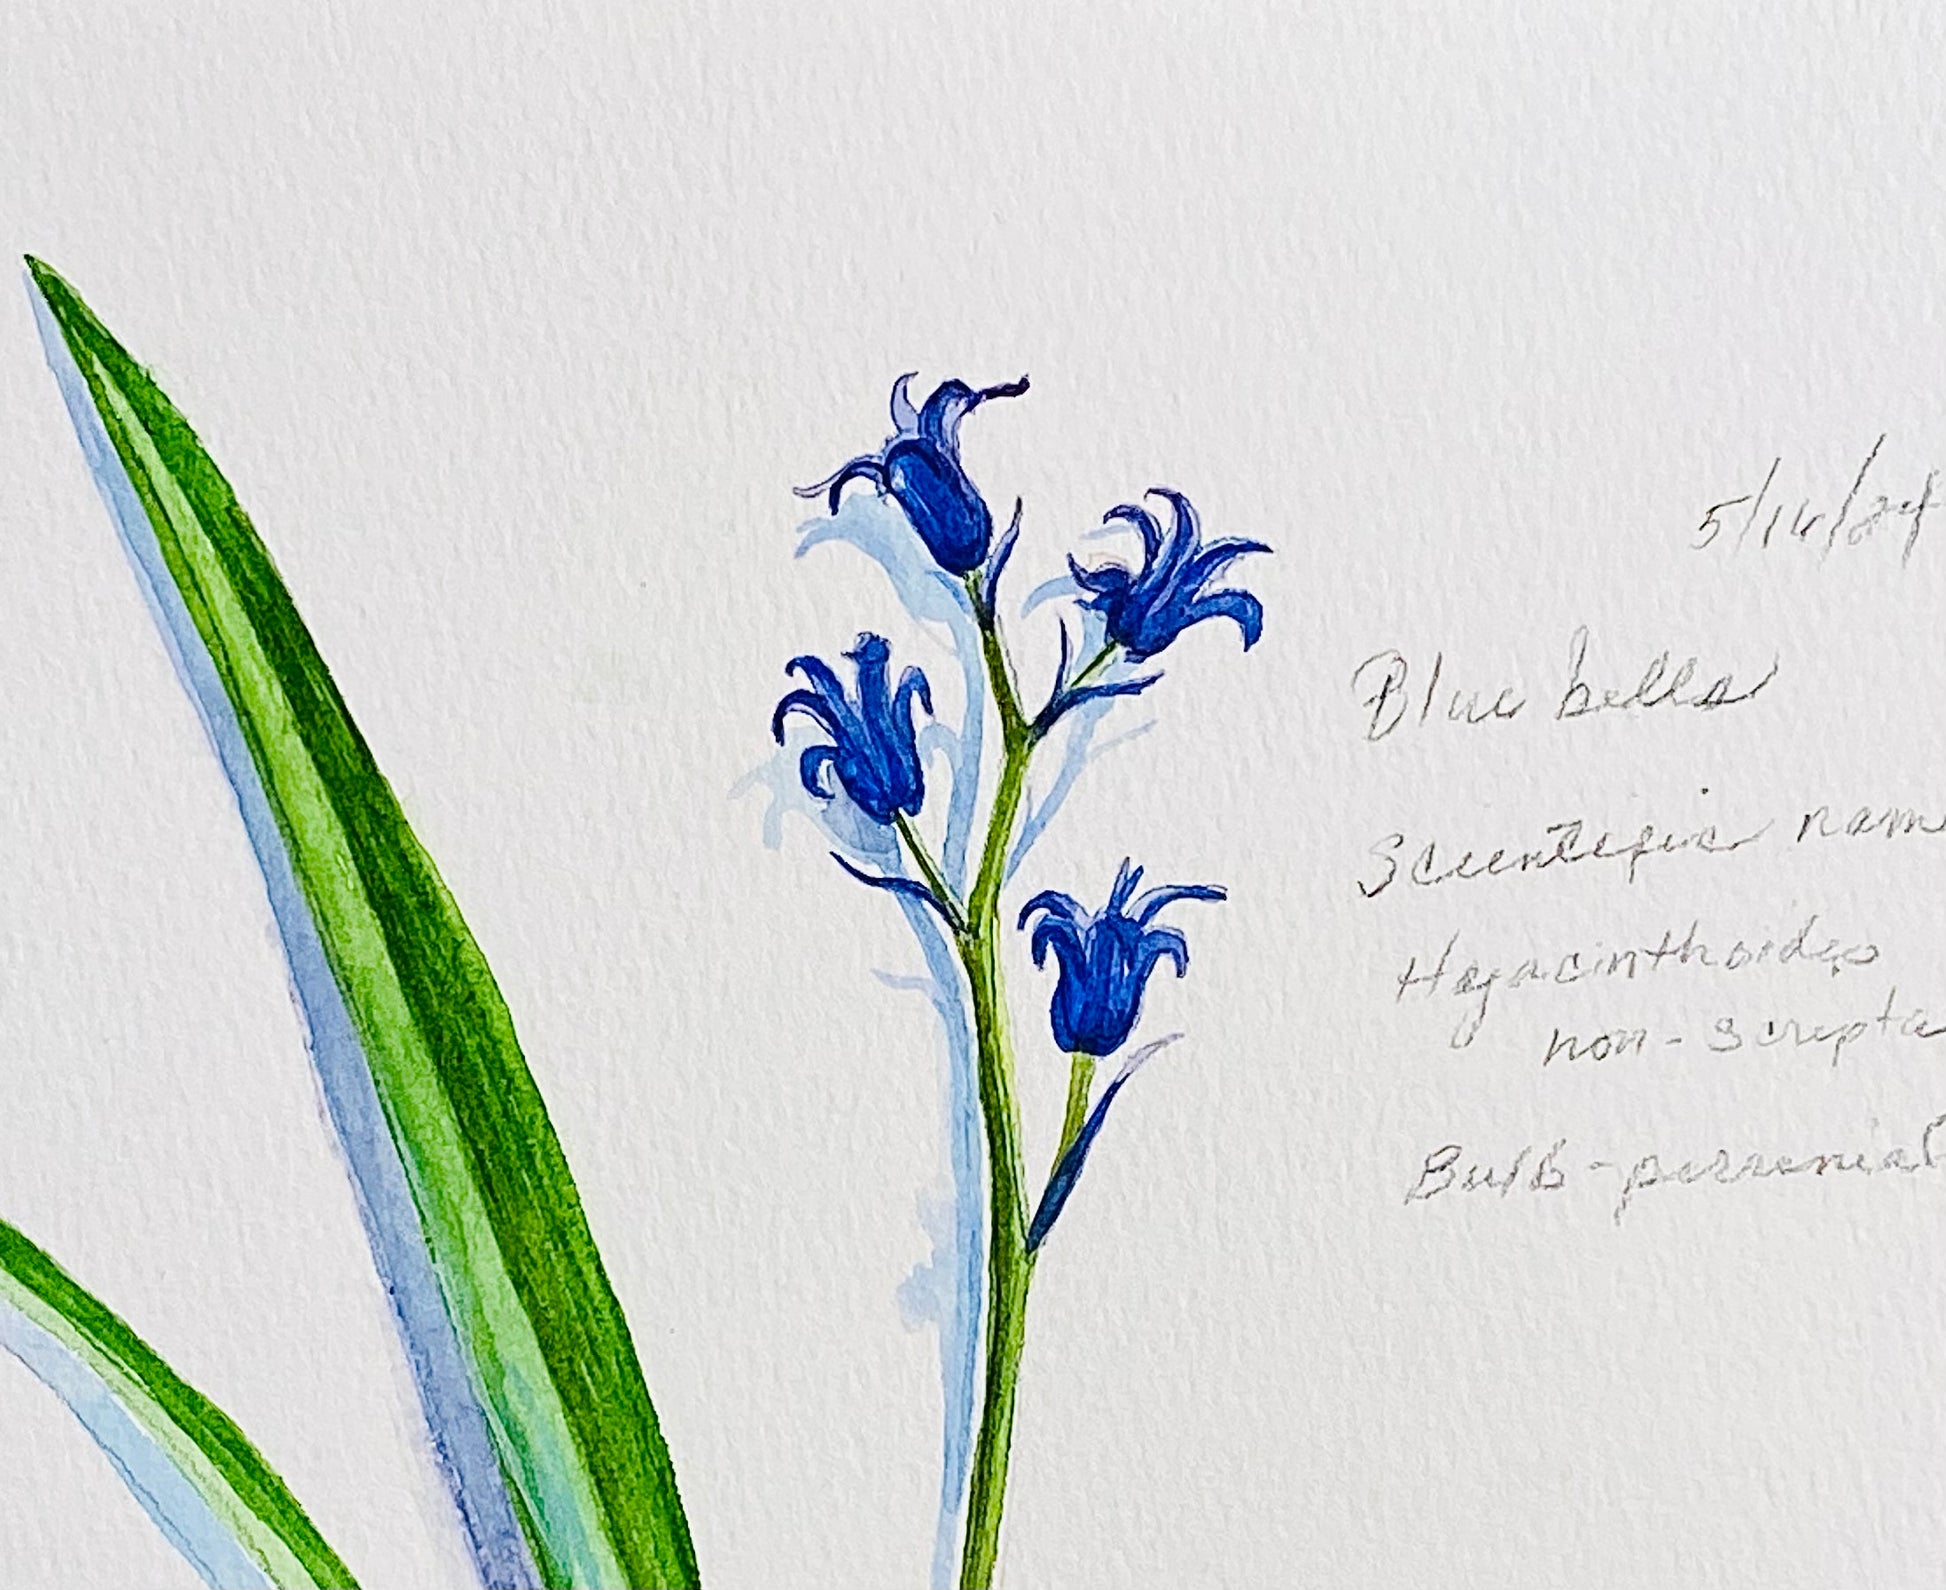 5/16/24
Blue bells
Scientific nam
Hyacinthoides
non-scripta
Bulb-perennial